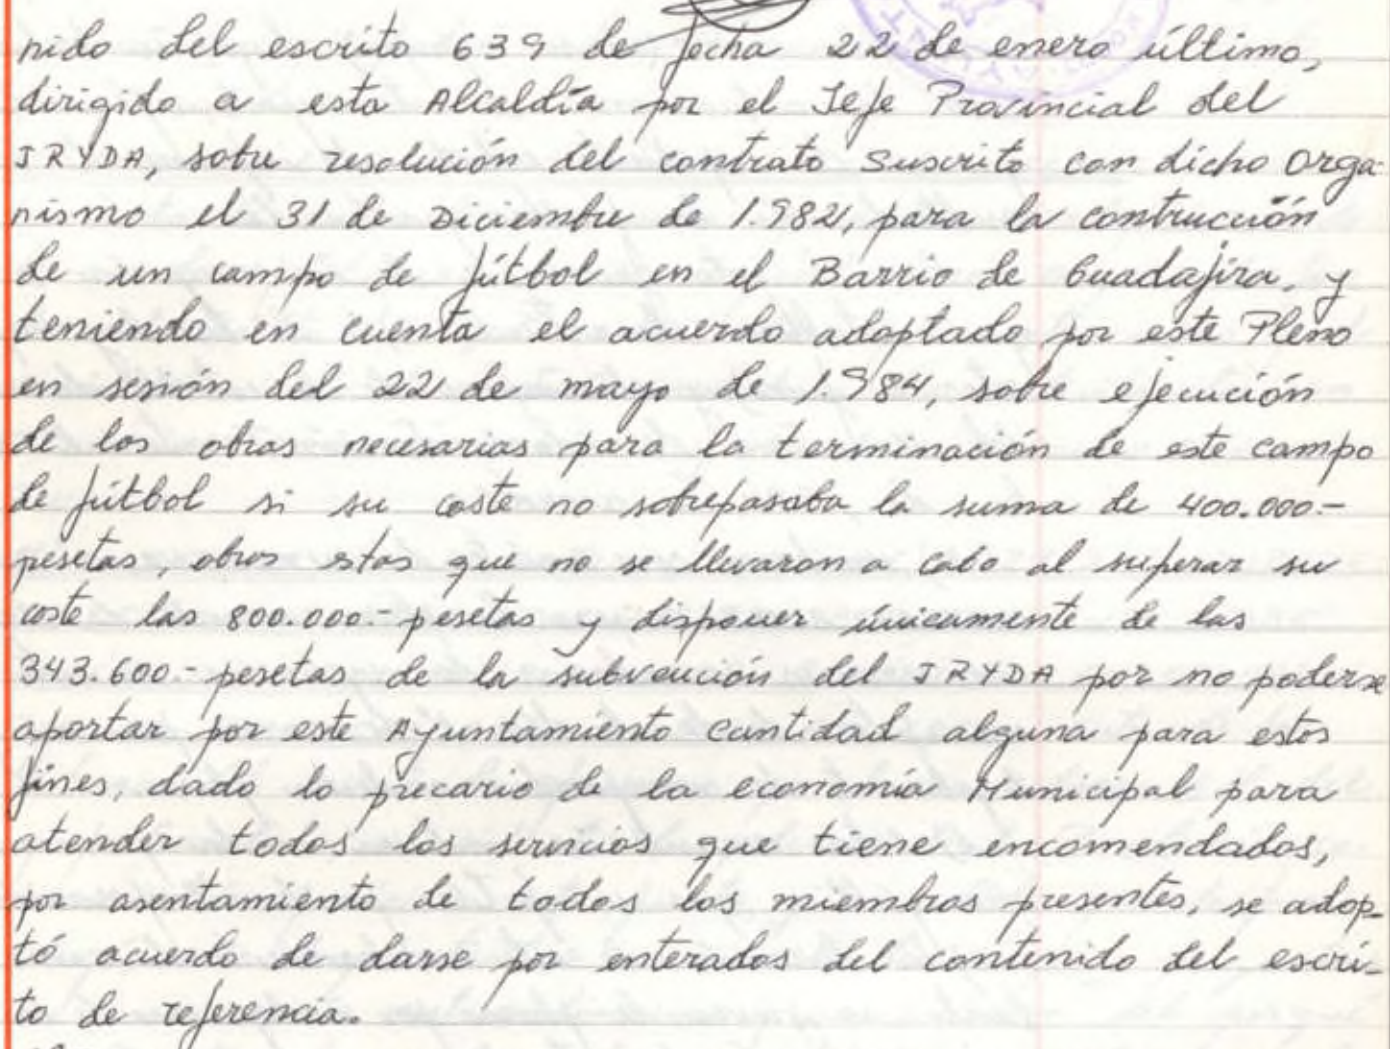 nido del escrito 639 de fecha 22 de enero último,
dirigido a esta Alcaldía por el Jefe Provincial del
IRYDA, sobre resolución del contrato suscrito con dicho Orga-
nismo el 31 de Diciembre de 1.982, para la contrucción
de un campo de fútbol en el Barrio de Guadajira, y
teniendo en cuenta el acuerdo adoptado por este Pleno
en sesión del 22 de mayo de 1.984, sobre ejecución
de las obras necesarias para la terminación de este campo
de fútbol si su coste no sobrepasaba la suma de 400.000.-
pesetas, obras estas que no se llevaron a cabo al superar su
coste las 800.000.- pesetas y disponer únicamente de las
343.600.- pesetas de la subvención del IRYDA por no poderse
aportar por este Ayuntamiento cantidad alguna para estos
fines, dado lo precario de la economía Municipal para
atender todos los servicios que tiene encomendados,
por asentamiento de todos los miembros presentes, se adop-
tó acuerdo de darse por enterados del contenido del escri-
to de referencia.